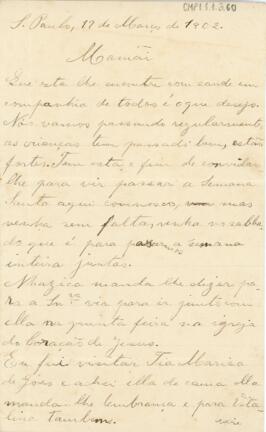 CMP1.1.3.60
S. Paulo, 17 de Março de 1902.
Mamãi
Que esta lhe encontre com saude em
companhia de todos é o que desejo.
Nós vamos passando regularmente,
as crianças tem passado bem, estão
fortes. Tem esta o fim de convidar
lhe para vir passar a Semana
Santa aqui comnosco, mas
venha sem falta, venha no sabba
do que é para passarmos a semana
inteira juntas.
manda lhe dizer pa
ra a Snra vir para ir junto com
ella na quinta feira na igreja
do Coração de Jesus.
Eu fui visitar Tia Mariea
de Goes e achei ella de cama ella
manda-lhe lembrança e para Vita
lina tambem. vire